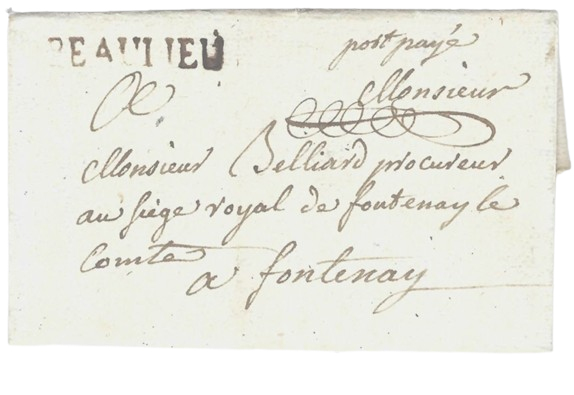 BEAULIEU
port payé
A
Monsieur
Monsieur Belliard procureur
au siège royal de fontenay le
Comte
a fontenay